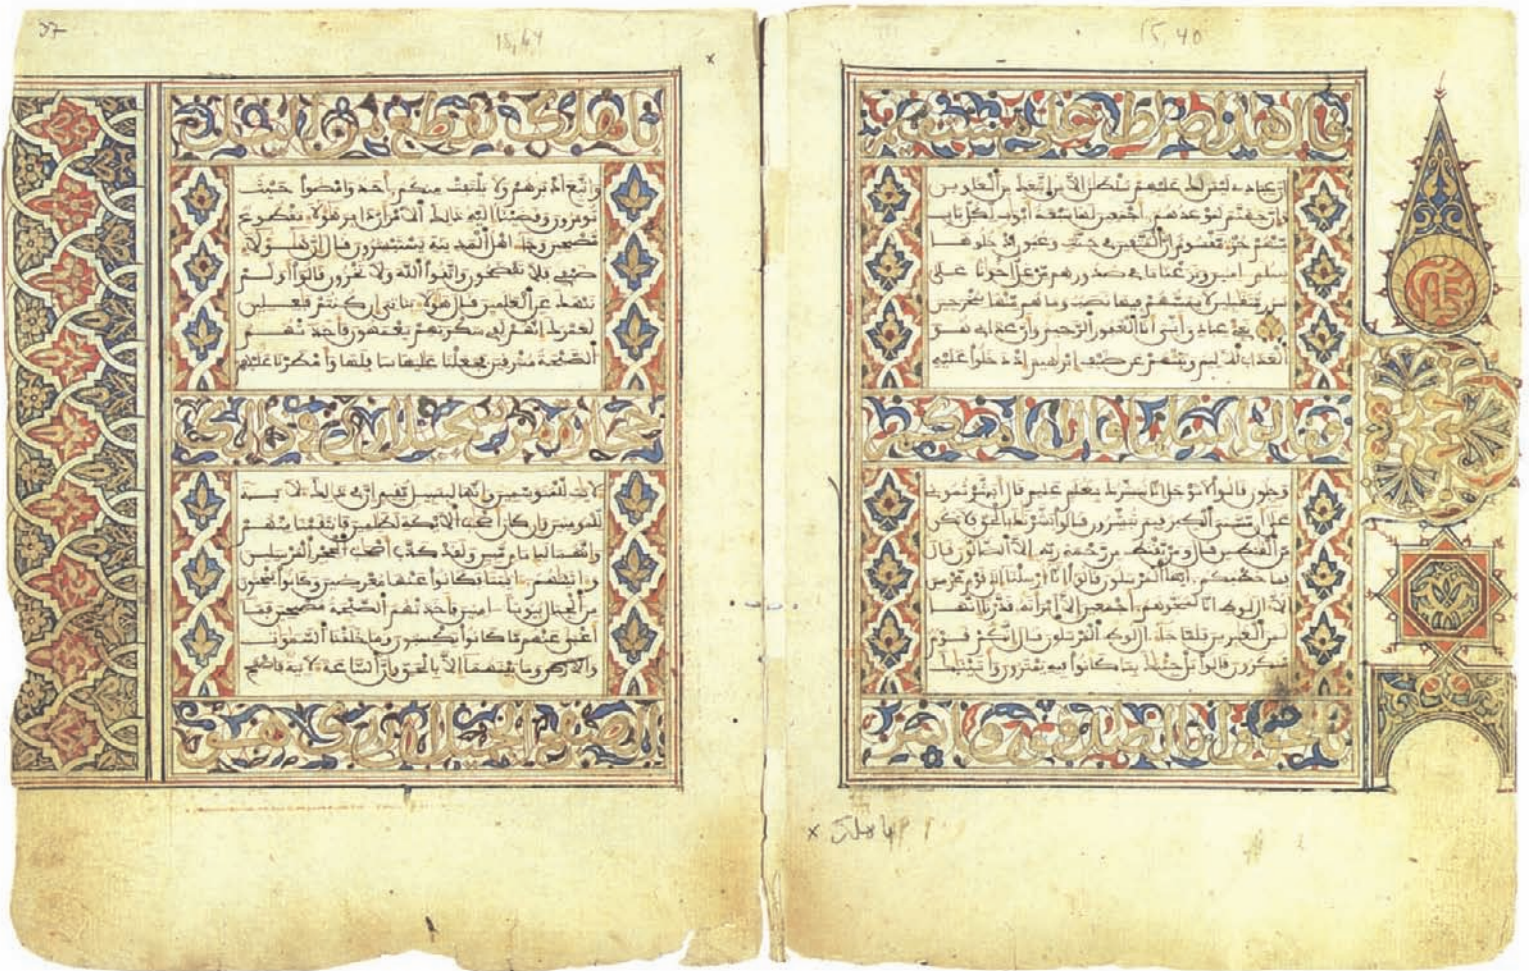 15,40
قال هذا صراط علي مستقيم
إن عبادي ليس لك عليهم سلطن إلا من اتبعك من الغاوين
وإن جهنم لموعدهم أجمعين لها سبعة أبوب لكل باب
منهم جزء مقسوم إن المتقين في جنت وعيون ادخلوها
بسلم امنين ونزعنا ما في صدورهم من غل اخونا على
سرر متقبلين لا يمسهم فيها نصب وما هم منها بمخرجين
نبئ عبادي أني أنا الغفور الرحيم وأن عذابي هو
العذاب الأليم ونبئهم عن ضيف ابرهيم إذ دخلوا عليه
فقالوا سلما قال إنا منكم
وجلون قالوا لا توجل إنا نبشرك بغلم عليم قال أبشرتموني
على أن مسني الكبر فبم تبشرون قالوا بشرنك بالحق فلا تكن
من القنطين قال ومن يقنط من رحمة ربه إلا الضالون قال
فما خطبكم أيها المرسلون قالوا إنا أرسلنا إلى قوم مجرمين
إلا ال لوط إنا لمنجوهم أجمعين إلا امرأته قدرنا إنها
لمن الغبرين فلما جاء ال لوط المرسلون قال إنكم قوم
منكرون قالوا بل جئنك بما كانوا فيه يمترون وأتينك
بالحق وإنا لصدقون فأسر
باهلك
37
15,64
بأهلك بقطع من اليل
واتبع أدبرهم ولا يلتفت منكم أحد وامضوا حيث
تومرون وقضينا إليه ذلك الأمر أن دابر هؤلاء مقطوع
مصبحين وجاء أهل المدينة يستبشرون قال إن هؤلاء
ضيفي فلا تفضحون واتقوا الله ولا تخزون قالوا أولم
ننهك عن العلمين قال هؤلاء بناتي إن كنتم فعلين
لعمرك إنهم لفي سكرتهم يعمهون فأخذتهم
الصيحة مشرقين فجعلنا عليها سافلها وأمطرنا عليهم
حجارة من سجيل إن في ذلك
لايت للمتوسمين وإنها لبسبيل مقيم إن في ذلك لاية
للمومنين وإن كان أصحب الأيكة لظلمين فانتقمنا منهم
وإنهما لبإمام مبين ولقد كذب أصحب الحجر المرسلين
وءاتينهم ءايتنا فكانوا عنها معرضين وكانوا ينحتون
من الجبال بيوتا ءامنين فأخذتهم الصيحة مصبحين فما
أغنى عنهم ما كانوا يكسبون وما خلقنا السموات
والأرض وما بينهما إلا بالحق وإن الساعة لاتية فاصفح
الصفح الجميل إن ربك هو